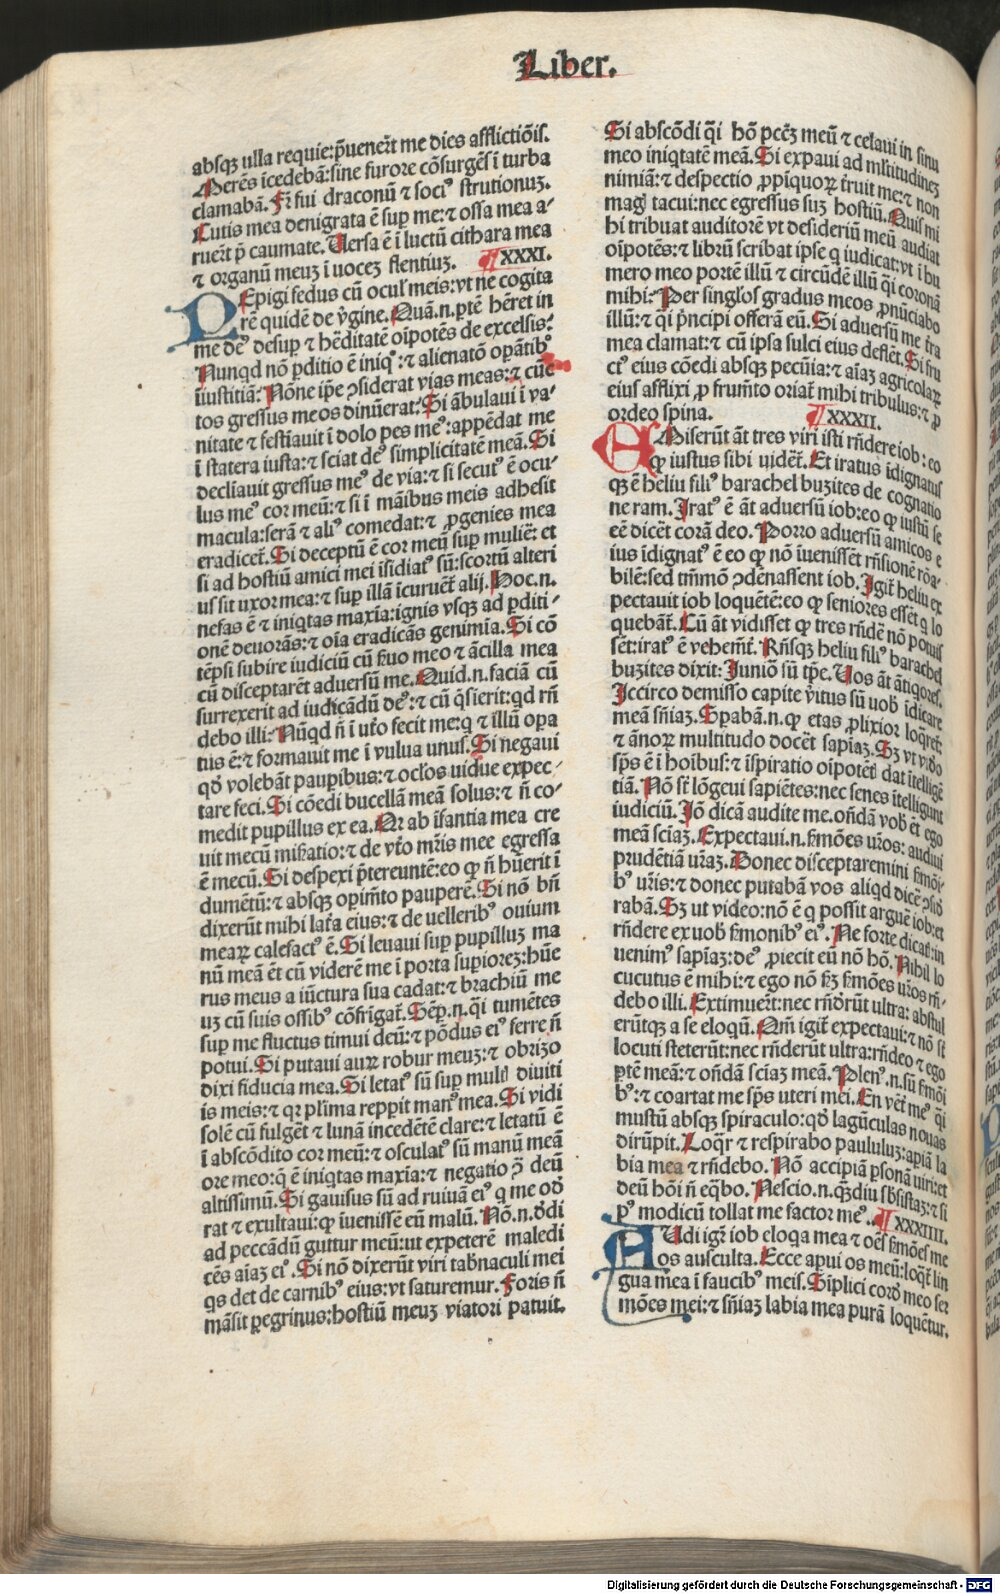 Liber.
absqꝫ ulla requie:p̄uenert̄ me dies afflictiōis.
Merēs īcedebā:sine furore cōsurgēs ī turba
clamabā. Fr̄ fui draconū ⁊ soci⁹ strutionuꝫ.
Cutis mea denigrata ē sup̱ me:⁊ ossa mea a-
ruert̄ p̄ caumate. Uersa ē ī luctū cithara mea
⁊ organū meuꝫ ī uoceꝫ flentiuꝫ. ¶XXXI.
PEpigi fedus cū ocul̛ meis:vt ne cogita
rē quidē de v̄gine. Quā.n.ptē hēret in
me de⁹ desup̱ ⁊ hēditatē oīpotēs de excelsis:
Nunqd nō p̱ditio ē iniq⁹:⁊ alienatō op̱ātib⁹
iiustitiā: Nōne ip̄e ↄsiderat vias meas:⁊ cūc
tos gressus meos dinūerat: Si ābulaui ī va-
nitate ⁊ festīauit ī dolo pes me⁹:appēdat me
ī statera iusta:⁊ sciat de⁹ simplicitatē meā. Si
decliauit gressus me⁹ de via:⁊ si secut⁹ ē ocu-
lus me⁹ cor meū:⁊ si ī māibus meis adhesit
macula:serā ⁊ ali⁹ comedat:⁊ ꝓgenies mea
eradicet̄. Si deceptū ē cor meū sup̱ muliē:et
si ad hostiū amici mei īsidiat⁹ sū:scortū alteri
us sit uxor mea:⁊ sup̱ illā īcuruēt̄ alij. Hoc.n.
nefas ē ⁊ iniqtas maxīa:ignis vsqꝫ ad p̱diti-
onē deuorās:⁊ oīa eradicās genimīa. Si cō
tēpsi subire iudiciū cū ẜuo meo ⁊ ācilla mea
cū disceptarēt aduersū me. Quid.n.faciā cū
surrexerit ad iudicādū de⁹:⁊ cū q̄sierit:qd rn̄
debo illi: Nūqd n̄ ī ut̄o fecit me:q ⁊ illū op̱a
tus ē:⁊ formauit me ī vulua unus. Si negaui
qd̄ volebāt paup̱ibus:⁊ oclōs uidue expec-
tare feci. Si cōedi bucellā meā solus:⁊ n̄ co-
medit pupillus ex ea. Qr ab īfantia mea cre
uit mecū miẜatio:⁊ de vt̄o mr̄is mee egressa
ē mecū. Si despexi p̄tereuntē:eo ꝙ n̄ hūerit ī
dumētū:⁊ absqꝫ op̱imt̄o pauperē. Si nō bn̄
dixerūt mihi latr̄a eius:⁊ de uellerib⁹ ouium
mearꝝ calefact⁹ ē. Si leuaui sup̱ pupilluꝫ ma
nū meā ēt cū viderē me ī porta sup̱iorē:hūe
rus meus a iūctura sua cadat:⁊ brachiū me
uꝫ cū suis ossib⁹ cōfrīgat̄. Sēp̱.n.q̄i tumētes
sup̱ me fluctus timui deū:⁊ pōdus ei⁹ ferre n̄
potui. Si putaui aurꝝ robur meuꝫ:⁊ obrizo
dixi fiducia mea. Si letat⁹ sū sup̱ mult̄ diuiti
is meis:⁊ qr pl̄ima repp̱it man⁹ mea. Si vidi
solē cū fulgēt ⁊ lunā incedētē clare:⁊ letatū ē
ī abscōdito cor meū:⁊ osculat⁹ sū manū meā
ore meo:q̄ ē iniqtas maxīa:⁊ negatio ↄ̄ deū
altissimū. Si gauisus sū ad ruinā ei⁹ q me od̄
rat ⁊ exultaui:ꝙ iuenissē eū malū. Nō.n.d̄di
ad peccādū guttur meū:ut expeterē maledi
cēs aīaꝫ ei⁹. Si nō dixerūt viri tabnaculi mei
qs det de carnib⁹ eius:vt saturemur. Foris n̄
māsit p̱egrinus:hostiū meuꝫ viatori patuit.
Si abscōdi q̄i hō pcc̄ꝫ meū ⁊ celaui in sinu
meo iniqtatē meā. Si expaui ad ml̄titudineꝫ
nimiā:⁊ despectio ꝓpīquorꝝ t̄ruit me:⁊ non
mag̛ tacui:nec egressus suꝫ hostiū. Quis mi
hi tribuat auditorē vt desideriū meū audiat
oīpotēs:⁊ librū scribat ipse q iudicat:vt ī hu
mero meo portē illū ⁊ circūdē illū q̄i coronā
mihi: Per singlos̄ gradus meos ꝓnūciabo
illū:⁊ q̄i p̄ncipi offerā eū. Si aduersū me tra
mea clamat:⁊ cū ipsa sulci eius deflēt. Si fru
ct⁹ eius cōedi absqꝫ pecūia:⁊ aīaꝫ agricolarꝝ
eius afflixi ꝓ frum̄to oriat̄ mihi tribulus:⁊ ꝓ
ordeo spina. ¶XXXII.
OMiserūt āt tres viri isti rn̄dere iob:eo
ꝙ iustus sibi uidēt̄. Et iratus īdignatus
qꝫ ē heliu fili⁹ barachel buzites de cognatio
ne ram. Irat⁹ ē āt aduersū iob:eo ꝙ iustū se
eē dicēt corā deo. Porro aduersū amicos e
ius īdignat⁹ ē eo ꝙ nō īuenissēt rn̄sionē rōa-
bilē:sed tm̄mō ↄdēnassent iob. Igit̄ heliu ex
pectauit iob loquētē:eo ꝙ seniores essēt q lo
quebāt̄. Cū āt vidisset ꝙ tres rn̄dē nō potuis
sēt:irat⁹ ē vehemt̄. Rn̄sqꝫ heliu fili⁹ barachel
buzites dixit: Iuniơ sū tp̄e. Uos āt ātiqores.
Iccirco demisso capite v̄itus sū uob̛ īdicare
meā sn̄iaꝫ. Sp̱abā.n.ꝙ etas ꝓlixior loq̄ret̄:
⁊ ānorꝝ multitudo docēt sapīaꝫ. Sꝫ vt video
sp̄s ē ī hoībus:⁊ īspiratio oīpotēt̛ dat ītelligē
tiā. Nō st̄ lōgeui sapiētes:nec senes ītelligunt
iudiciū. Iō dicā audite me.ondā vob̛ ēt ego
meā sciaꝫ. Expectaui.n.ẜmōes ur̄os:audiui
prudētiā ur̄aꝫ. Donec disceptaremini ẜmōi-
b⁹ ur̄is:⁊ donec putabā vos aliqd dicē ↄsid̄
rabā. Sꝫ ut video:nō ē q possit arguē iob:et
rn̄dere ex uob̛ ẜmonib⁹ ei⁹. Ne forte dicat̛:in
uenim⁹ sapīaꝫ:de⁹ ꝓiecit eū nō hō. Nihil lo
cucutus ē mihi:⁊ ego nō ẜꝫ ẜmōes ur̄os rn̄-
debo illi. Extimuert̄:nec rn̄dr̄ūt ultra:abstul
erūtqꝫ a se eloqū. Qm̄ igit̄ expectaui:⁊ nō st̄
locuti steterūt:nec rn̄derūt ultra:rn̄deo ⁊ ego
ptē meā:⁊ ondā sciaꝫ meā. Plen⁹.n.sū ẜmōi
b⁹:⁊ coartat me sp̄s uteri mei. En vēt̄ me⁹ q̄i
mustū absqꝫ spiraculo:qd̄ lagūculas nouas
dirūpit. Loq̄r ⁊ respirabo paululuꝫ:apiā la
bia mea ⁊ rn̄debo. Nō accipiā p̱sonā uiri:et
deū hōi n̄ eq̄bo. Nescio.n.qꝫdiu sb̄sistaꝫ:⁊ si
p⁹ modicū tollat me factor me⁹. ¶XXXIII.
AUdi igr̄ iob eloqa mea ⁊ oēs ẜmōes me
os ausculta. Ecce apui os meū:loq̄t̄ lin
gua mea ī faucib⁹ meis. Simplici cord̛ meo ser
mōes mei:⁊ sn̄iaꝫ labia mea purā loquētur.
Digitalisierung gefördert durch die Deutsche Forschungsgemeinschaft - DFG